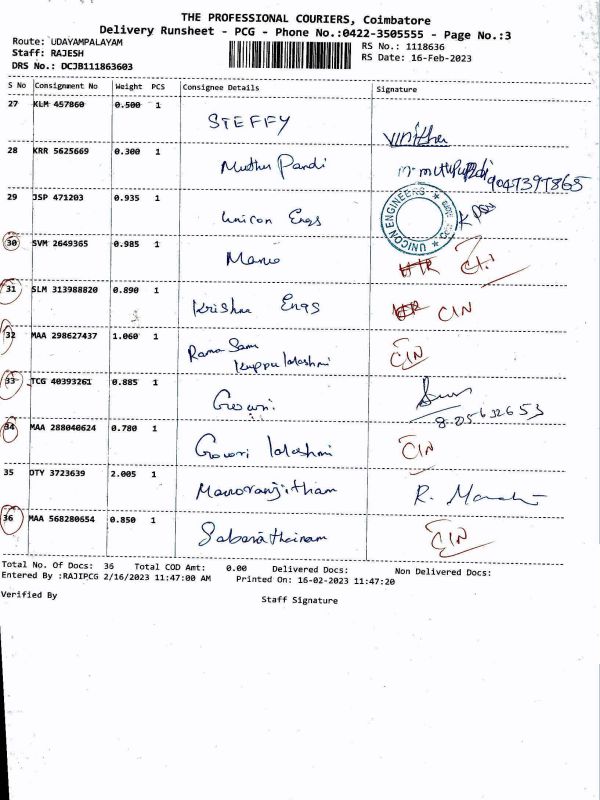 THE PROFESSIONAL COURIERS, Coimbatore
Delivery Runsheet - PCG - Phone No.:0422-3505555 - Page No.:3
Route: UDAYAMPALAYAM
Staff: RAJESH
DRS No.: DCJB111863603
RS No.: 1118636
RS Date: 16-Feb-2023
S No Consignment No Weight PCS Consignee Details Signature
27 KLM 457860 0.500 1 STEFFY Vinitha
28 KRR 5625669 0.300 1 Muthu Pandi 9047397865
29 JSP 471203 0.935 1 Unicon Engs UNICON ENGINEERS
30 SVM 2649365 0.985 1
31 SLM 313988820 0.890 1 Krishna Engs CIN
32 MAA 298627437 1.060 1 Rama Samy CIN
Kuppulakshmi
33 TCG 40393261 0.885 1 Gowri
34 MAA 288040624 0.780 1 Gowri lakshmi CIN
35 DTY 3723639 2.005 1 Manoranjitham
36 MAA 568280654 0.850 1 Sabarathinam CIN
Total No. Of Docs: 36 Total COD Amt: 0.00 Delivered Docs: Non Delivered Docs:
Entered By :RAJIPCG 2/16/2023 11:47:00 AM Printed On: 16-02-2023 11:47:20
Verified By Staff Signature